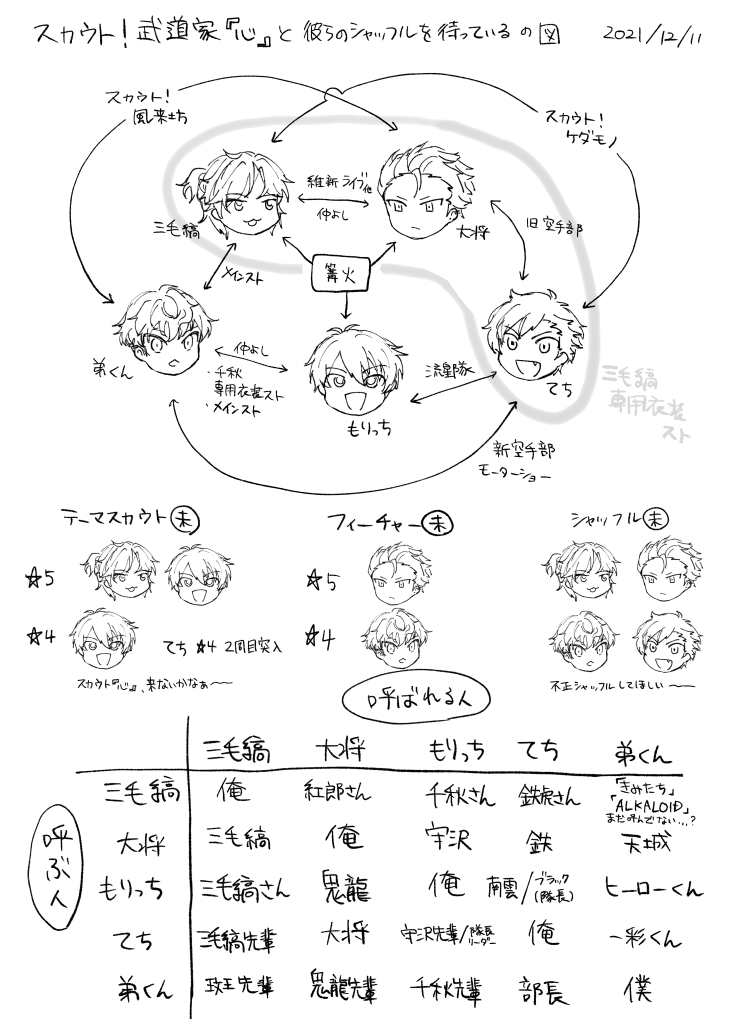 スカウト！武道家『心』と彼らのシャッフルを待っているの図 2021/12/11
スカウト！
風来坊
スカウト！
ケダモノ
三毛縞
維新ライブ他
仲よし
大将
旧空手部
篝火
メインスト
弟くん
仲よし
・千秋
専用衣装スト
・メインスト
もりっち
流星隊
てち
三毛縞
専用衣装
スト
新空手部
モーターショー
テーマスカウト 未
フィーチャー 未
シャッフル 未
☆5
☆5
☆4
てち ☆4 2周目突入
☆4
スカウト『心』、来ないかなぁ〜〜
不正シャッフルしてほしい〜〜
呼ばれる人
三毛縞 大将 もりっち てち 弟くん
呼ぶ人
三毛縞 俺 紅郎さん 千秋さん 鉄虎さん 「きみたち」
「ALKALOID」
まだ呼んでない…？
大将 三毛縞 俺 守沢 鉄 天城
もりっち 三毛縞さん 鬼龍 俺 南雲/ブラック(隊長) ヒーローくん
てち 三毛縞先輩 大将 守沢先輩/隊長 リーダー 俺 一彩くん
弟くん 斑先輩 鬼龍先輩 千秋先輩 部長 僕